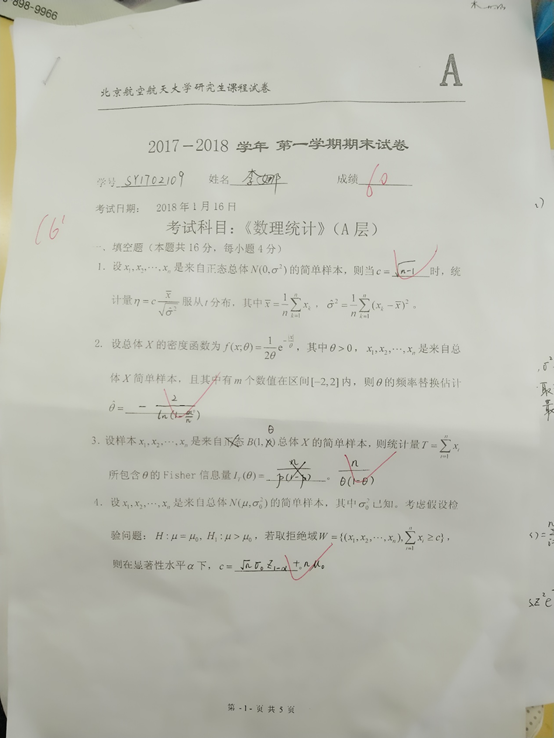 898-9966
A
北京航空航天大学研究生课程试卷
2017-2018 学年 第一学期期末试卷
学号 SY1702109 姓名 成绩 60
考试日期: 2018年1月16日
16'
考试科目:《数理统计》(A 层)
一、填空题(本题共16分,每小题4分)
1. 设 x₁,x₂,⋯,xₙ 是来自正态总体 N(0,σ²) 的简单样本,则当 c = √(n-1) 时,统
计量 η = c x̄/√σ̂² 服从 t 分布,其中 x̄ = 1/n ∑ₖ₌₁ⁿ xₖ , σ̂² = 1/n ∑ₖ₌₁ⁿ (xₖ - x̄)² 。
2. 设总体 X 的密度函数为 f(x;θ) = 1/2θ e^(-|x|/θ) ,其中 θ > 0, x₁,x₂,⋯,xₙ 是来自总
体 X 简单样本,且其中有 m 个数值在区间 [-2,2] 内,则 θ 的频率替换估计
θ̂ = - 2/ln(1-m/n)
θ
3. 设样本 x₁,x₂,⋯,xₙ 是来自正态 B(1, ) 总体 X 的简单样本,则统计量 T = ∑ᵢ₌₁ⁿ xᵢ
所包含 θ 的 Fisher 信息量 I_T(θ) = n/p(1-p) 。 n/θ(1-θ)
4. 设 x₁,x₂,⋯,xₙ 是来自总体 N(μ,σ₀²) 的简单样本,其中 σ₀² 已知。考虑假设检
验问题: H : μ = μ₀, H₁ : μ > μ₀ ,若取拒绝域 W = {(x₁,x₂,⋯,xₙ), ∑ᵢ₌₁ⁿ xᵢ ≥ c} ,
则在显著性水平 α 下, c = √n σ₀ Z₁₋α + n μ₀
第 -1- 页 共 5 页